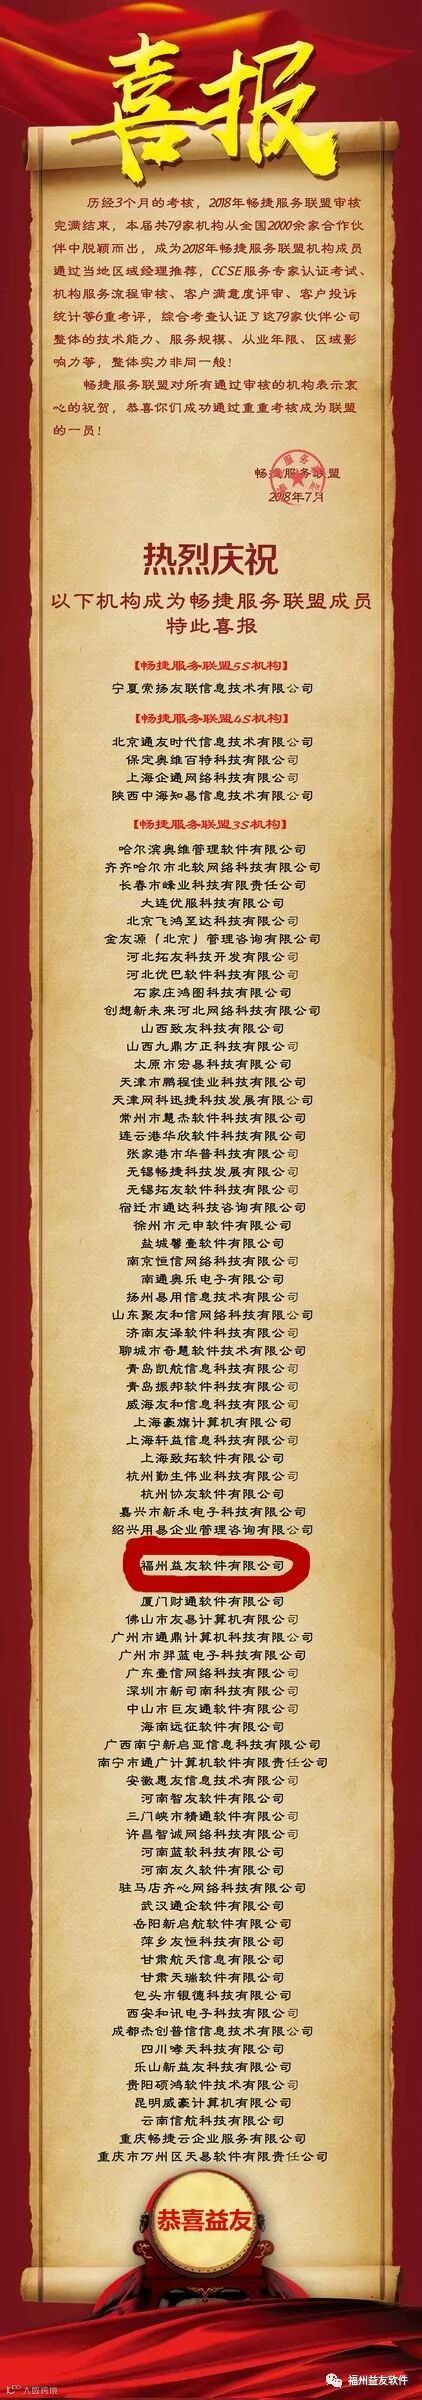 喜报
历经3个月的考核，2018年畅捷服务联盟审核
完满结束，本届共79家机构从全国2000余家合作伙
伴中脱颖而出，成为2018年畅捷服务联盟机构成员
通过当地区域经理推荐，CCSE服务专家认证考试、
机构服务流程审核、客户满意度评审、客户投诉
统计等6重考评，综合考查认证了这79家伙伴公司
整体的技术能力、服务规模、从业年限、区域影
响力等，整体实力非同一般！
畅捷服务联盟对所有通过审核的机构表示衷
心的祝贺，恭喜你们成功通过重重考核成为联盟
的一员！
畅捷服务联盟
2018年7月
热烈庆祝
以下机构成为畅捷服务联盟成员
特此喜报
【畅捷服务联盟5S机构】
宁夏索扬友联信息技术有限公司
【畅捷服务联盟4S机构】
北京通友时代信息技术有限公司
保定奥维百特科技有限公司
上海企通网络科技有限公司
陕西中海知易信息技术有限公司
【畅捷服务联盟3S机构】
哈尔滨奥维管理软件有限公司
齐齐哈尔市北软网络科技有限公司
长春市峰业科技有限责任公司
大连优服科技有限公司
北京飞鸿至达科技有限公司
金友源（北京）管理咨询有限公司
河北拓友科技开发有限公司
河北优巴软件科技有限公司
石家庄鸿图科技有限公司
创想新未来河北网络科技有限公司
山西致友科技有限公司
山西九鼎方正科技有限公司
太原市宏易科技有限公司
天津市鹏程佳业科技有限公司
天津网科迅捷科技发展有限公司
常州市慧杰软件科技有限公司
连云港华欣软件科技有限公司
张家港市华普科技有限公司
无锡畅捷科技发展有限公司
无锡拓友软件科技有限公司
宿迁市通达科技咨询有限公司
徐州市元申软件有限公司
盐城馨壹软件有限公司
南京恒信网络科技有限公司
南通奥乐电子有限公司
扬州易用信息技术有限公司
山东聚友和信网络科技有限公司
济南友泽软件科技有限公司
聊城市奇慧软件技术有限公司
青岛凯航信息科技有限公司
青岛振邦软件科技有限公司
威海友和信息科技有限公司
上海豪旗计算机有限公司
上海轩益信息科技有限公司
上海致拓软件有限公司
杭州勤生伟业科技有限公司
杭州协友软件有限公司
嘉兴市新禾电子科技有限公司
绍兴用易企业管理咨询有限公司
福州益友软件有限公司
厦门财通软件有限公司
佛山市友易计算机有限公司
广州市通鼎计算机科技有限公司
广州市羿蓝电子科技有限公司
广东壹信网络科技有限公司
深圳市新司南科技有限公司
中山市巨友通软件有限公司
海南远征软件有限公司
广西南宁新启亚信息科技有限公司
南宁市通广计算机软件有限责任公司
安徽惠友信息技术有限公司
河南智友软件有限公司
三门峡市精通软件有限公司
许昌智诚网络科技有限公司
河南蓝软科技有限公司
河南友久软件有限公司
驻马店齐心网络科技有限公司
武汉通企软件有限公司
岳阳新启航软件有限公司
萍乡友恒科技有限公司
甘肃航天信息有限公司
甘肃天瑞软件有限公司
包头市银德科技有限公司
西安和讯电子科技有限公司
成都杰创普信信息技术有限公司
四川哮天科技有限公司
乐山新益友科技有限公司
贵阳硕鸿软件技术有限公司
昆明威豪计算机有限公司
云南信航科技有限公司
重庆畅捷云企业服务有限公司
重庆市万州区天易软件有限责任公司
恭喜益友
福州益友软件
大数跨境